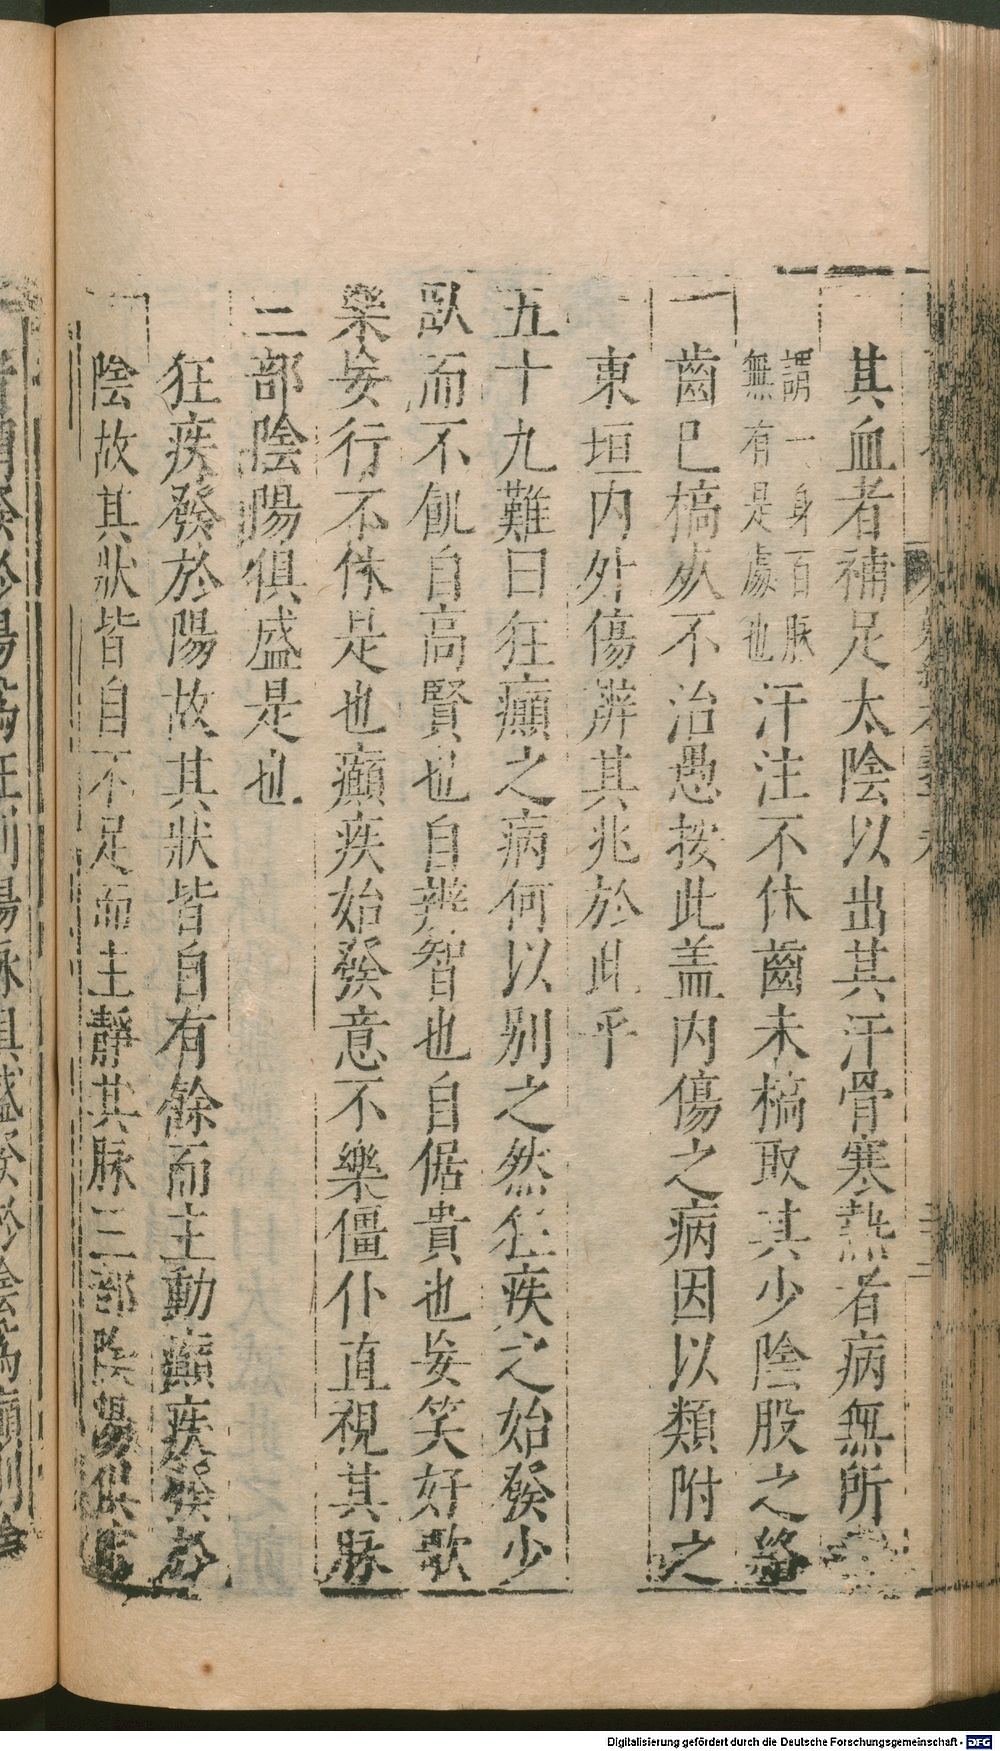 其血者補足太陰以出其汗骨寒熱者病無所
謂一身百脉
無有是處也
汗注不休齒未槁取其少陰股之絡
齒已槁死不治愚按此盖内傷之病因以類附之
東垣内外傷辨其兆於此乎
五十九難曰狂癲之病何以别之然狂疾之始發少
臥而不飢自高賢也自辨智也自倨貴也妄笑好歌
樂妄行不休是也癲疾始發意不樂僵仆直視其脉
三部陰陽俱盛是也
狂疾發於陽故其狀皆自有餘而主動癲疾發於
陰故其狀皆自不足而主靜其脉三部陰陽俱
發於陽為狂則陽脉俱盛發於陰為癲則陰
Digitalisierung gefördert durch die Deutsche Forschungsgemeinschaft - DFG